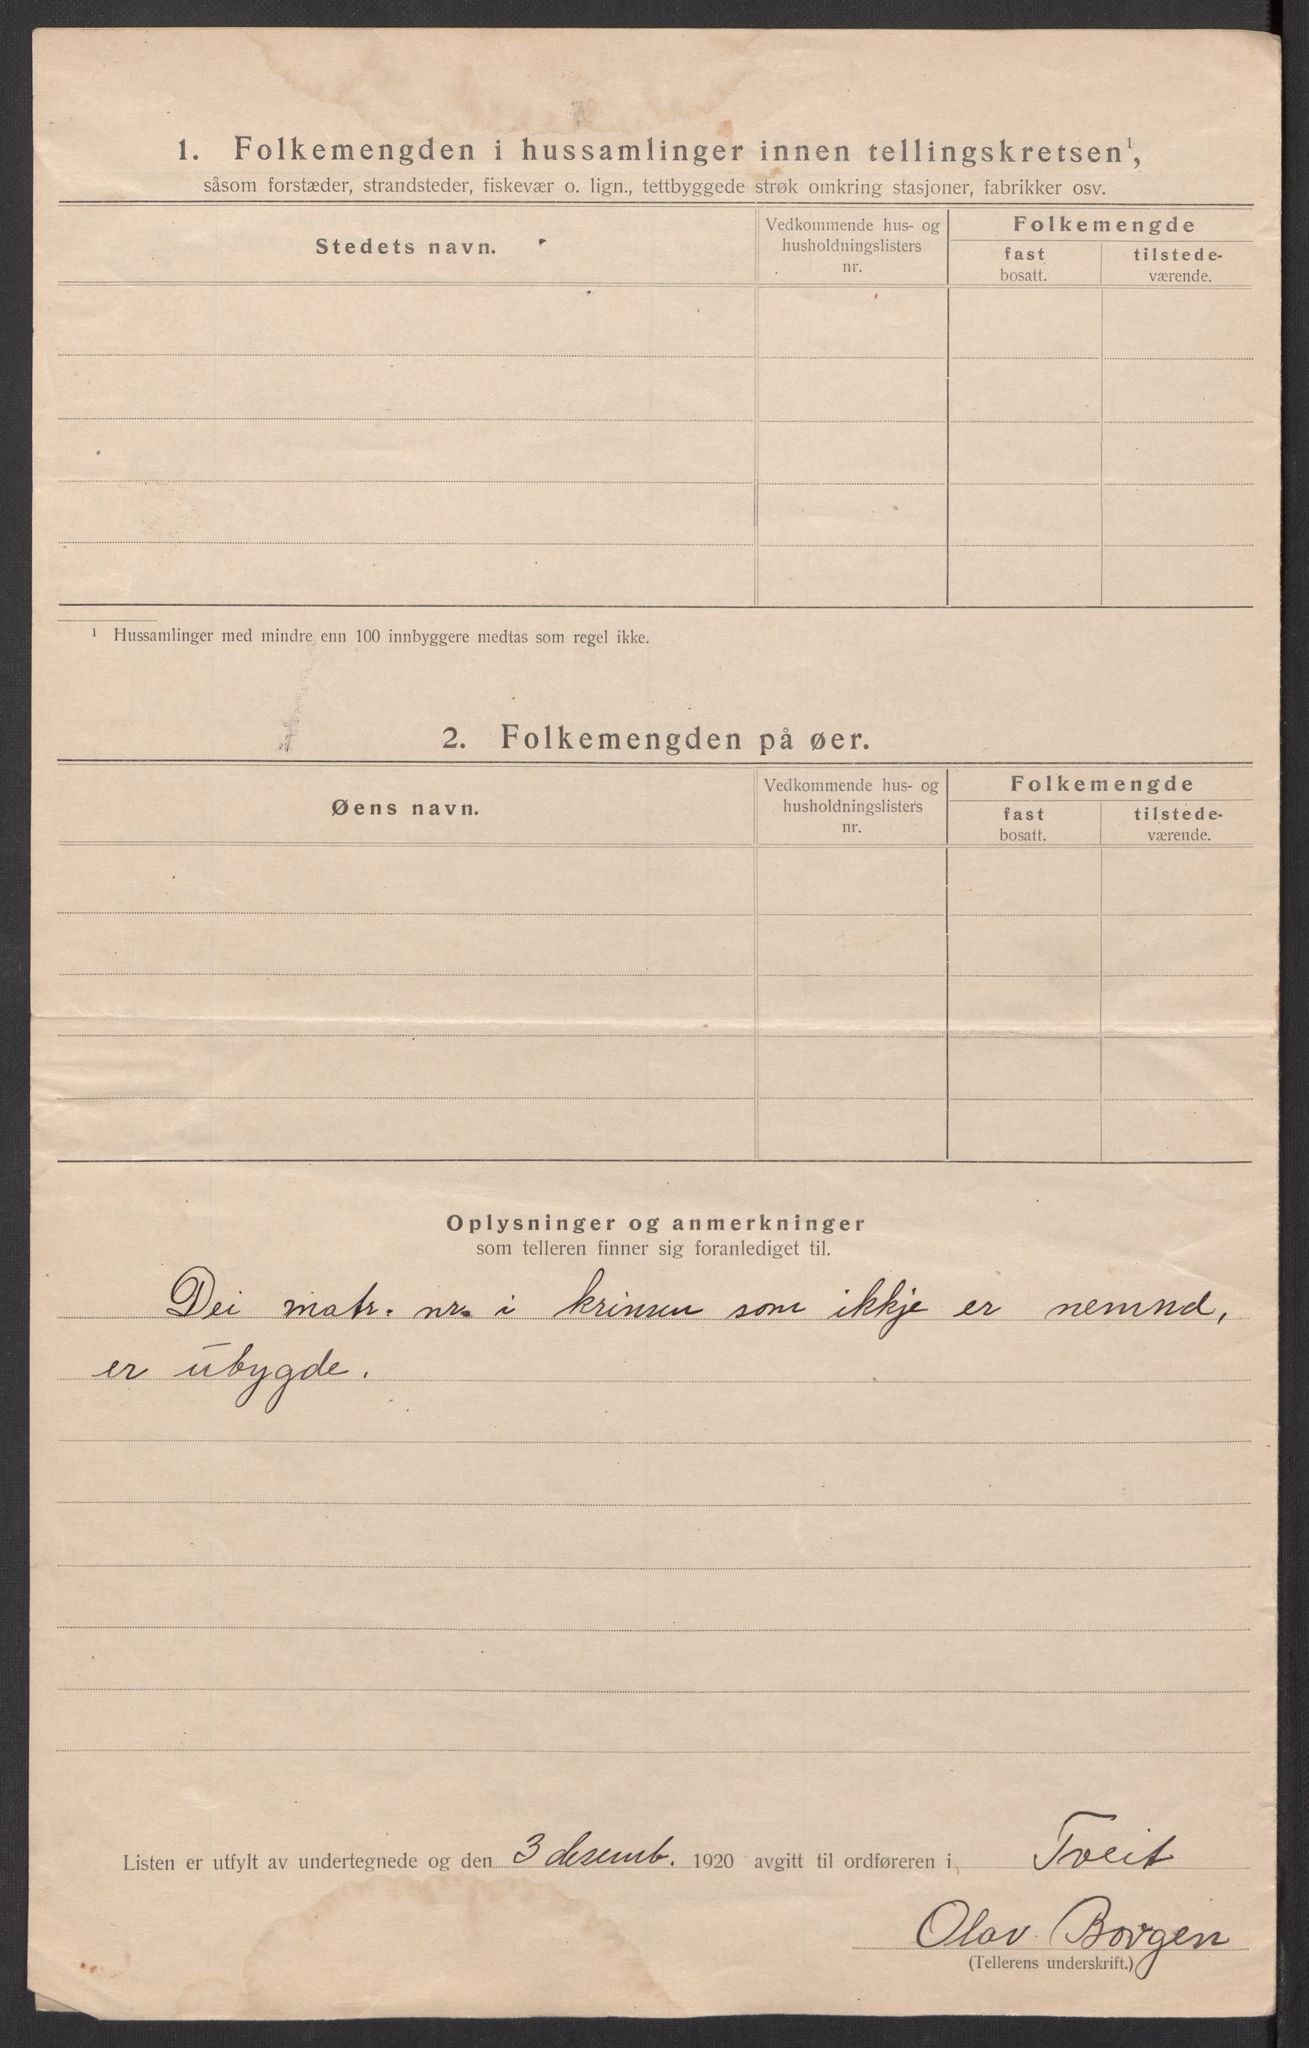 1. Folkemengden i hussamlinger innen tellingskretsen¹,
såsom forstæder, strandsteder, fiskevær o. lign., tettbyggede strøk omkring stasjoner, fabrikker osv.
Stedets navn.
Vedkommende hus- og
husholdningslisters
nr.
Folkemengde
fast
bosatt.
tilstede-
værende.
¹ Hussamlinger med mindre enn 100 innbyggere medtas som regel ikke.
2. Folkemengden på øer.
Øens navn.
Vedkommende hus- og
husholdningslisters
nr.
Folkemengde
fast
bosatt.
tilstede-
værende.
Oplysninger og anmerkninger
som telleren finner sig foranlediget til.
Dei matr. nr. i krinsen som ikkje er nemnd,
er ubygde.
Listen er utfylt av undertegnede og den 3 desemb. 1920 avgitt til ordføreren i Tveit
Olav Borgen
(Tellerens underskrift.)